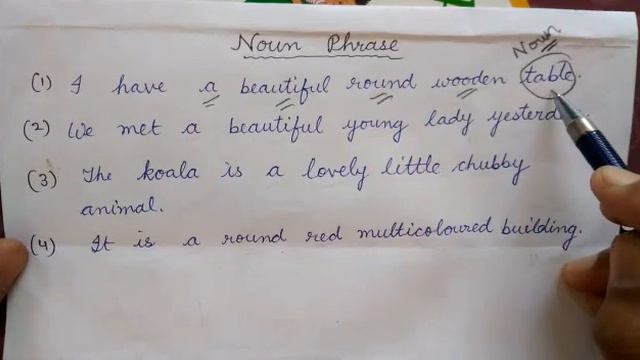 Noun Phrase
Noun
(1) I have a beautiful round wooden table.
(2) We met a beautiful young lady
(3) The koala is a lovely little chubby
animal.
(4) It is a round red multicoloured building.